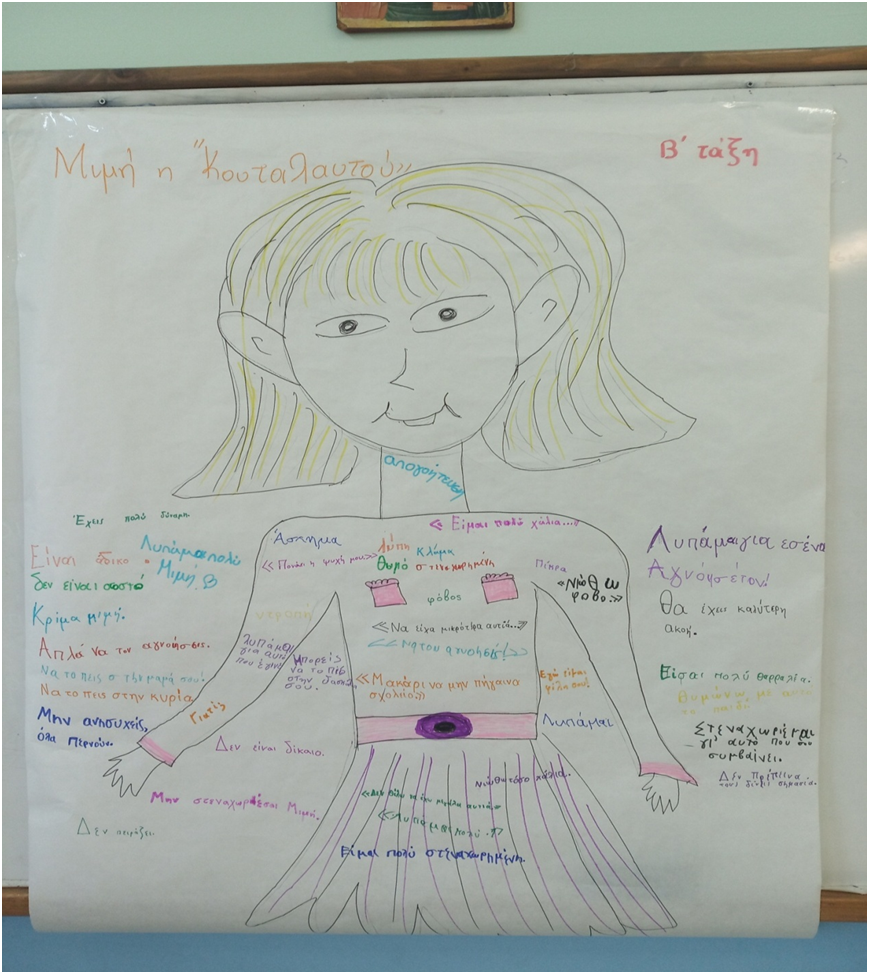 Μιμή η "Κουταλαυτού"
Β΄ τάξη
Έχεις πολύ δύναμη
Είναι άδικο.
Λυπάμαι πολύ
Μιμή.
δεν είναι σωστό
Κρίμα μιμή.
Απλά να τον αγνοήσεις.
Να το πεις στη μαμά σου!
Να το πεις στην κυρία
Μην ανησυχείς,
όλα περνούν.
Δεν πειράζει
Μην στεναχωριέσαι Μιμή.
Δεν είναι δίκαιο.
Γιατί;
Λυπάμαι
για αυτό
που έγινε
Μπορείς
να το πεις
στην δασκάλα
σου.
Άσχημα
<<Πονάει η ψυχή μου>>
<< Είμαι πολύ χάλια...>>
λύπη κλάμα
θυμό στεναχωρημένη
φόβος
Πίκρα
<<Νιώθω
φόβο.>>
<<Να είχα μικρότερα αυτιά..>>
<<Μακάρι να μην πήγαινα
σχολείο>>
Εγώ είμαι
φίλη σου.
Λυπάμαι
Νιώθω τόσο χάλια.
<<Λυπάμαι πολύ.>>
Είμαι πολύ στεναχωρημένη.
Λυπάμαι για εσένα
Αγνόησέ τον!
Θα έχεις καλύτερη
ακοή.
Είσαι πολύ θαρραλέα.
Θυμώνω με αυτό
το παιδί
Στεναχωριέμαι
γι' αυτό που σου
συμβαίνει.
Δεν πρέπει να
τους δίνεις σημασία.